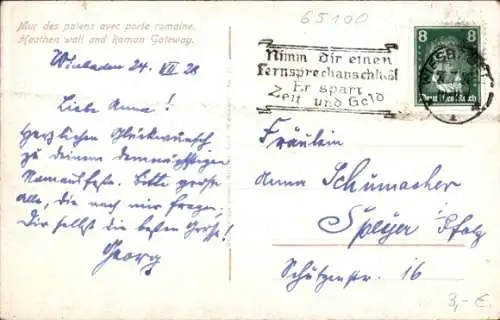 Mur des païens avec porte romaine.
Heathen wall and Roman Gateway.
65100
Wiesbaden 24. VII 28
Liebe Anna!
Herzlichen Glückwunsch
zu deinem demnächstigen
Namensfeste. Bitte grüße
alle, die nach mir fragen.
Dir selbst die besten Grüße!
Georg
Nimm dir einen
Fernsprechanschluß
Er spart
Zeit und Geld
8 8
Deutsches Reich
WIESBADEN
Fräulein
Anna Schumacher
Speyer Pfalz
Schützenstr. 16
3,- €